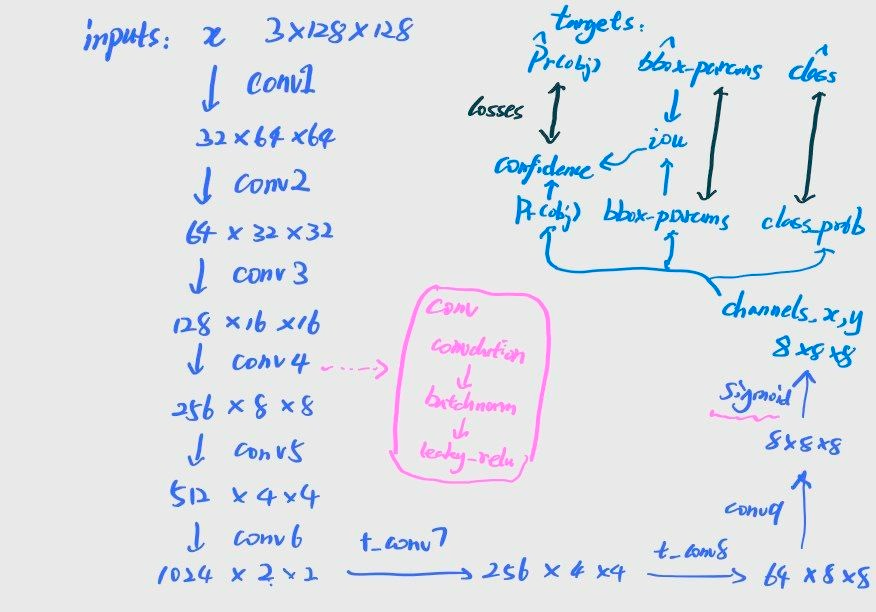 inputs: x 3×128×128
conv1
32×64×64
conv2
64×32×32
conv3
128×16×16
conv4
256×8×8
conv5
512×4×4
conv6
1024×2×2
t_conv7
256×4×4
t_conv8
64×8×8
conv9
8×8×8
sigmoid
8×8×8
channels_x,y
conv
convolution
batchnorm
leaky_relu
targets:
P̂r(obj) bbox_params^ class^
losses
iou
confidence
Pr(obj) bbox_params class_prob